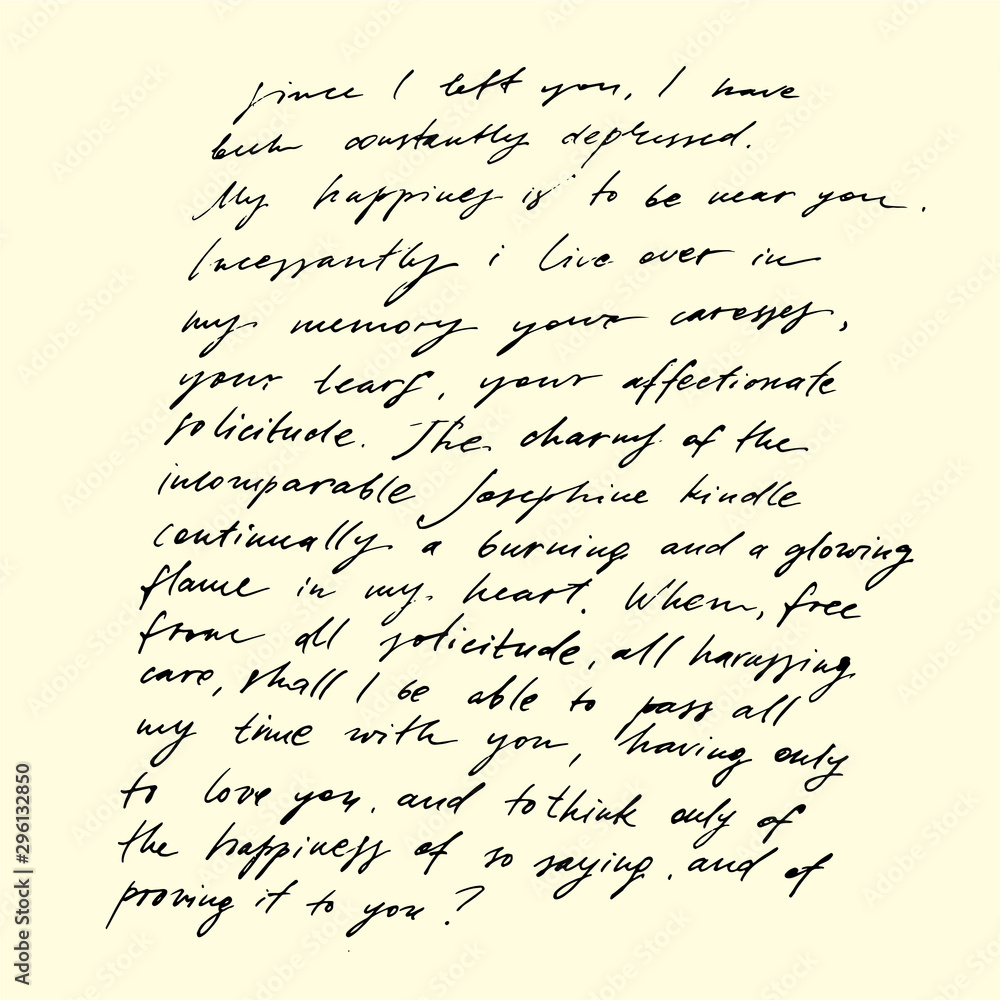 since I left you, I have
been constantly depressed.
My happines is to be near you.
Incessantly i live over in
my memory your caresses,
your tears, your affectionate
solicitude. The charms of the
incomparable Josephine kindle
continually a burning and a glowing
flame in my heart. When, free
from all solicitude, all harassing
care, shall I be able to pass all
my time with you, having only
to love you, and to think only of
the happiness of so saying, and of
proving it to you?
Adobe Stock | #296132850